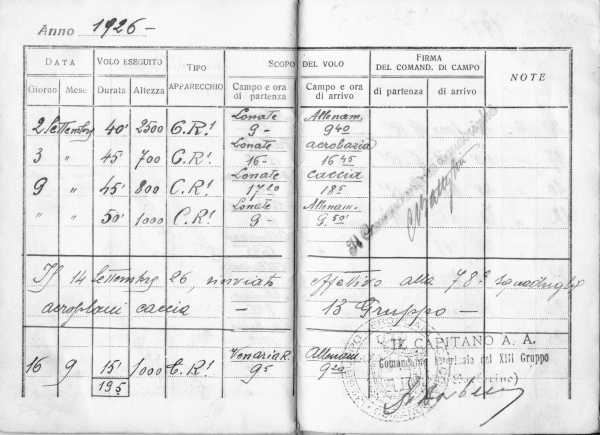 Anno 1926-
DATA VOLO ESEGUITO TIPO APPARECCHIO SCOPO DEL VOLO FIRMA DEL COMAND. DI CAMPO NOTE
Giorno Mese Durata Altezza Campo e ora di partenza Campo e ora di arrivo di partenza di arrivo
Lonate Allenam.
2 Settembre 40' 2500 C.R.1 9- 9 40
Lonate acrobazia
3 " 45 700 C.R.1 16- 16 45
Lonate caccia
9 " 45' 800 C.R.1 17 20 18 5
Lonate Allenam.
" " 50' 1000 C.R.1 9- 9.50'
Il 14 Settembre 26, inviato effettivo alla 78ª squadriglia
aeroplani caccia - 13 Gruppo -
Venaria R. Allenam.
16 9 15' 1000 C.R.1 9 5 9 20
195
IL CAPITANO A. A.
Comandante interinale del XIII Gruppo